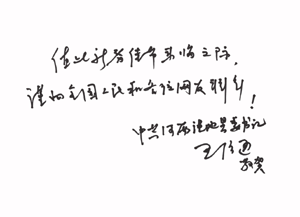 值此新春佳节来临之际，
谨向全国人民和各位网友拜年！
中共河南滑县县委书记
王
敬贺